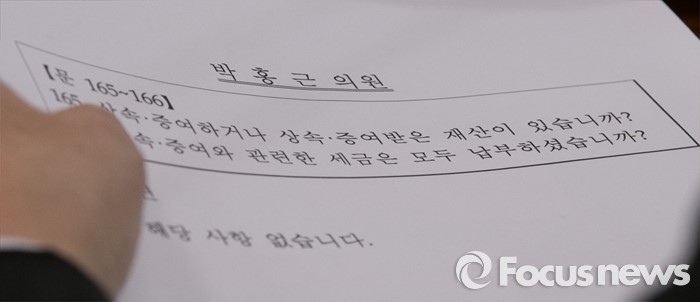 박 홍 근 의원
【문 165~166】
165. 상속·증여하거나 상속·증여받은 재산이 있습니까?
속·증여와 관련한 세금은 모두 납부하셨습니까?
해당 사항 없습니다.
Focusnews
www.focus.kr